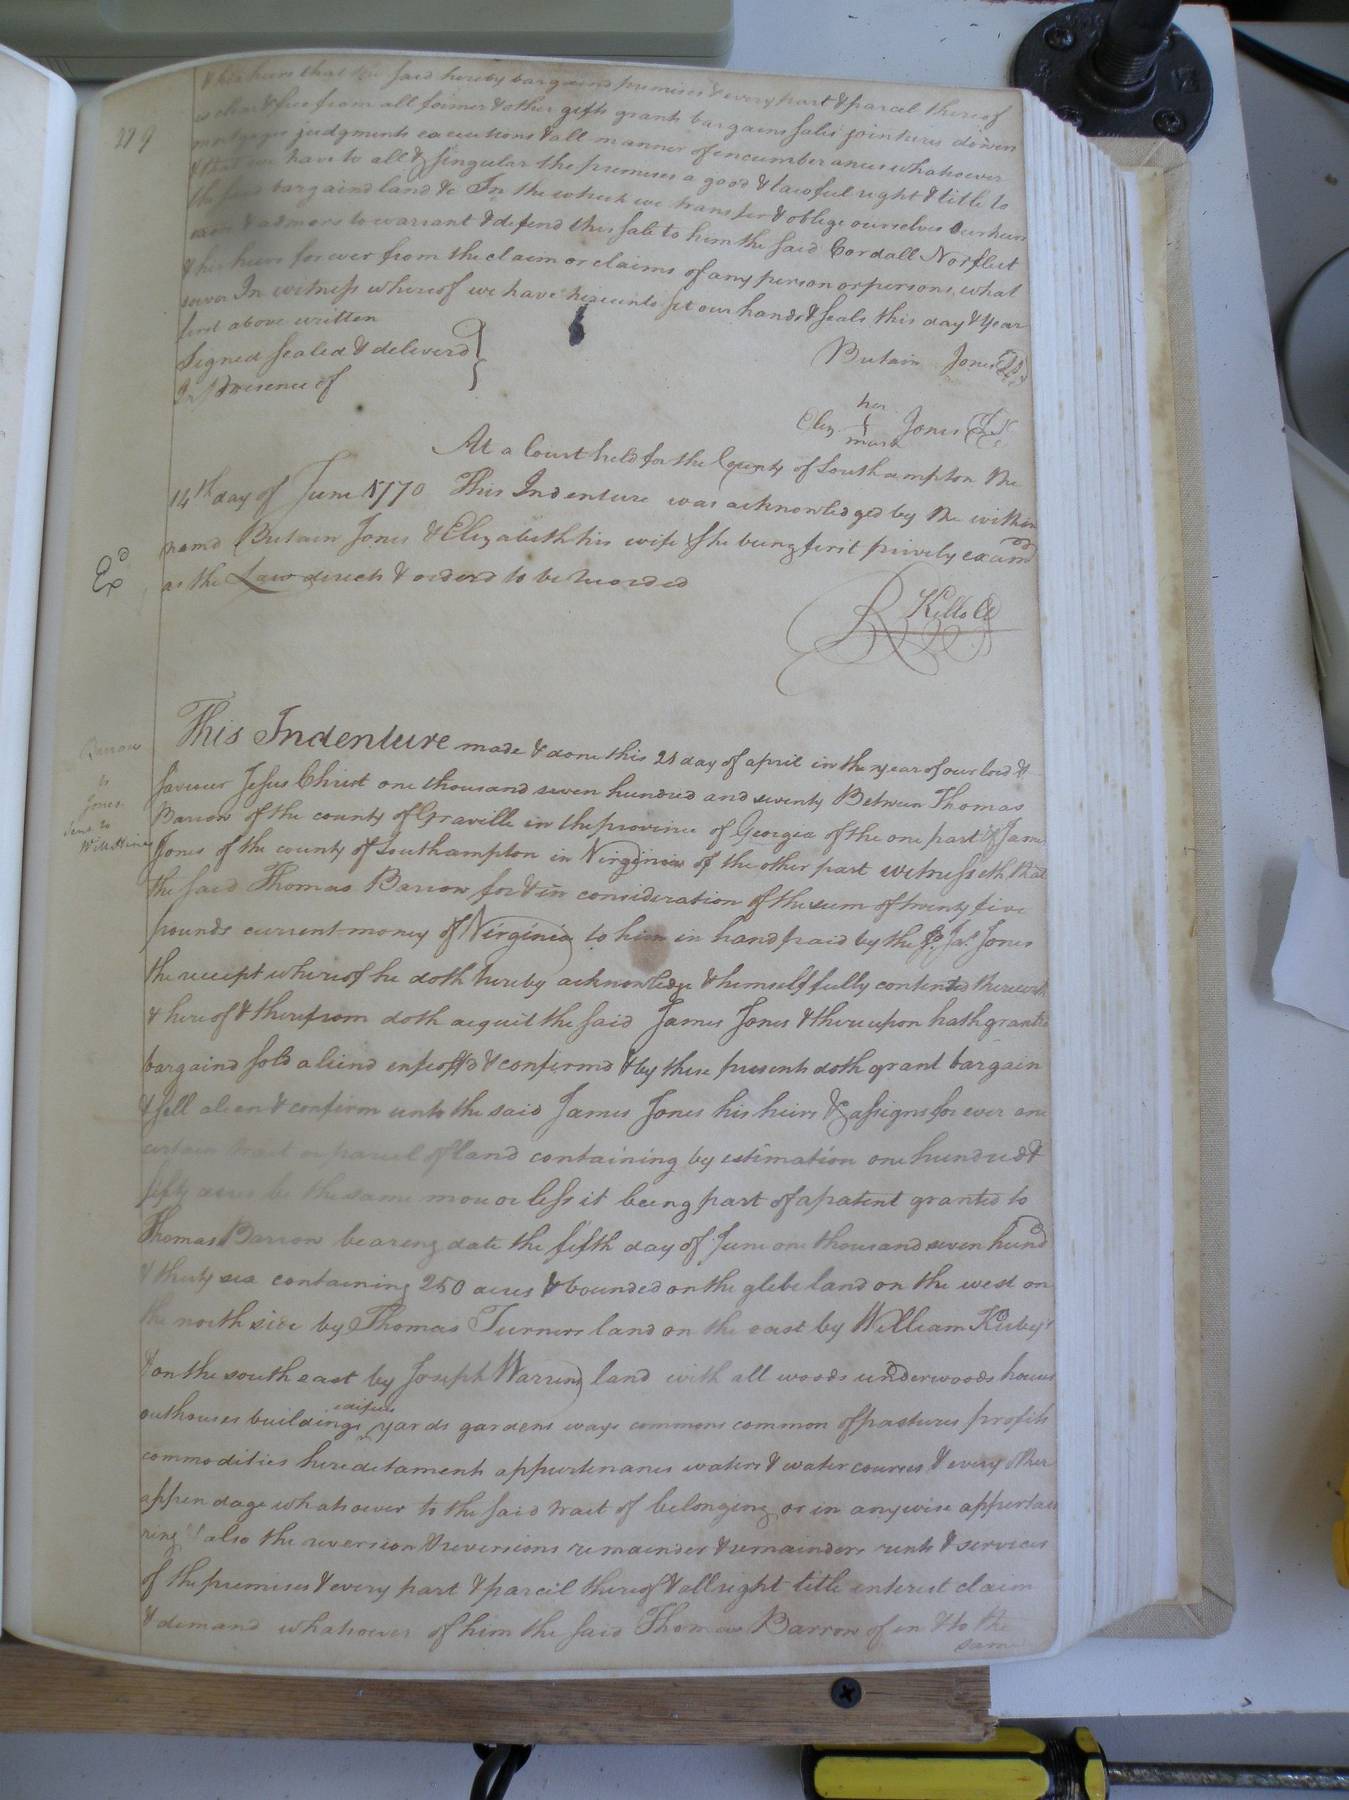 279
& his heirs that the said hereby bargaind premises & every part & parcel thereof
is clear & free from all former & other gifts grants bargains sales jointures dower
mortgages judgments executions & all manner of incumberances whatsoever
& that we have to all & singular the premises a good & lawful right & title to
the said bargaind land &c In the which we transfer & oblige ourselves our heirs
exrs & admors to warrant & defend this sale to him the said Cordall Norfleet
& his heirs for ever from the claim or claims of any person or persons what
soever In witness whereof we have hereunto set our hands & seals this day & year
first above written
Signed sealed & deliverd
In presence of
Butain Jones
her
Eliz Jones
mark
At a Court held for the County of Southampton the
14th day of June 1770 This Indenture was acknowledged by the within
namd Butain Jones & Elizabeth his wife she being first privily examd
Exd
as the Law directs & orderd to be recorded
R Kello Cl
Barrow
to
Jones
Sent to
This Indenture made & done this 21 day of april in the year of our lord &
saviour Jesus Christ one thousand seven hundred and seventy Between Thomas
Barrow of the county of Graville in the province of Georgea of the one part & James
Jones of the county of Southampton in Virginia of the other part witnesseth that
the said Thomas Barrow for & in consideration of the sum of twenty five
pounds current money of Virginia to him in hand paid by the sd Jas Jones
the receipt whereof he doth hereby acknowledge & himself fully contented therewith
& hereof & therefrom doth acquit the said James Jones & thereupon hath granted
bargaind sold aliend enfeoffd & confirmd & by these presents doth grant bargain
& sell alien & confirm unto the said James Jones his heirs & assigns for ever one
certain tract or parcel of land containing by estimation one hundred &
fifty acres be the same more or less it being part of a patent granted to
Thomas Barrow bearing date the fifth day of June one thousand seven hund
& thirty six containing 250 acres & bounded on the glebe land on the west on
the north side by Thomas Turners land on the east by William Kirbys
& on the south east by Joseph Warrens land with all woods underwoods houses
edifices
outhouses buildings yards gardens ways commons common of pastures profits
commodities hereditaments appurtenances waters & water courses & every other
appendage whatsoever to the said tract of belonging or in anywise appertai
ning & also the reversion & reversions remainder & remainders rents & services
of the premises & every part & parcel thereof & all right title interest claim
& demand whatsoever of him the said Thomas Barrow of in & to the
same